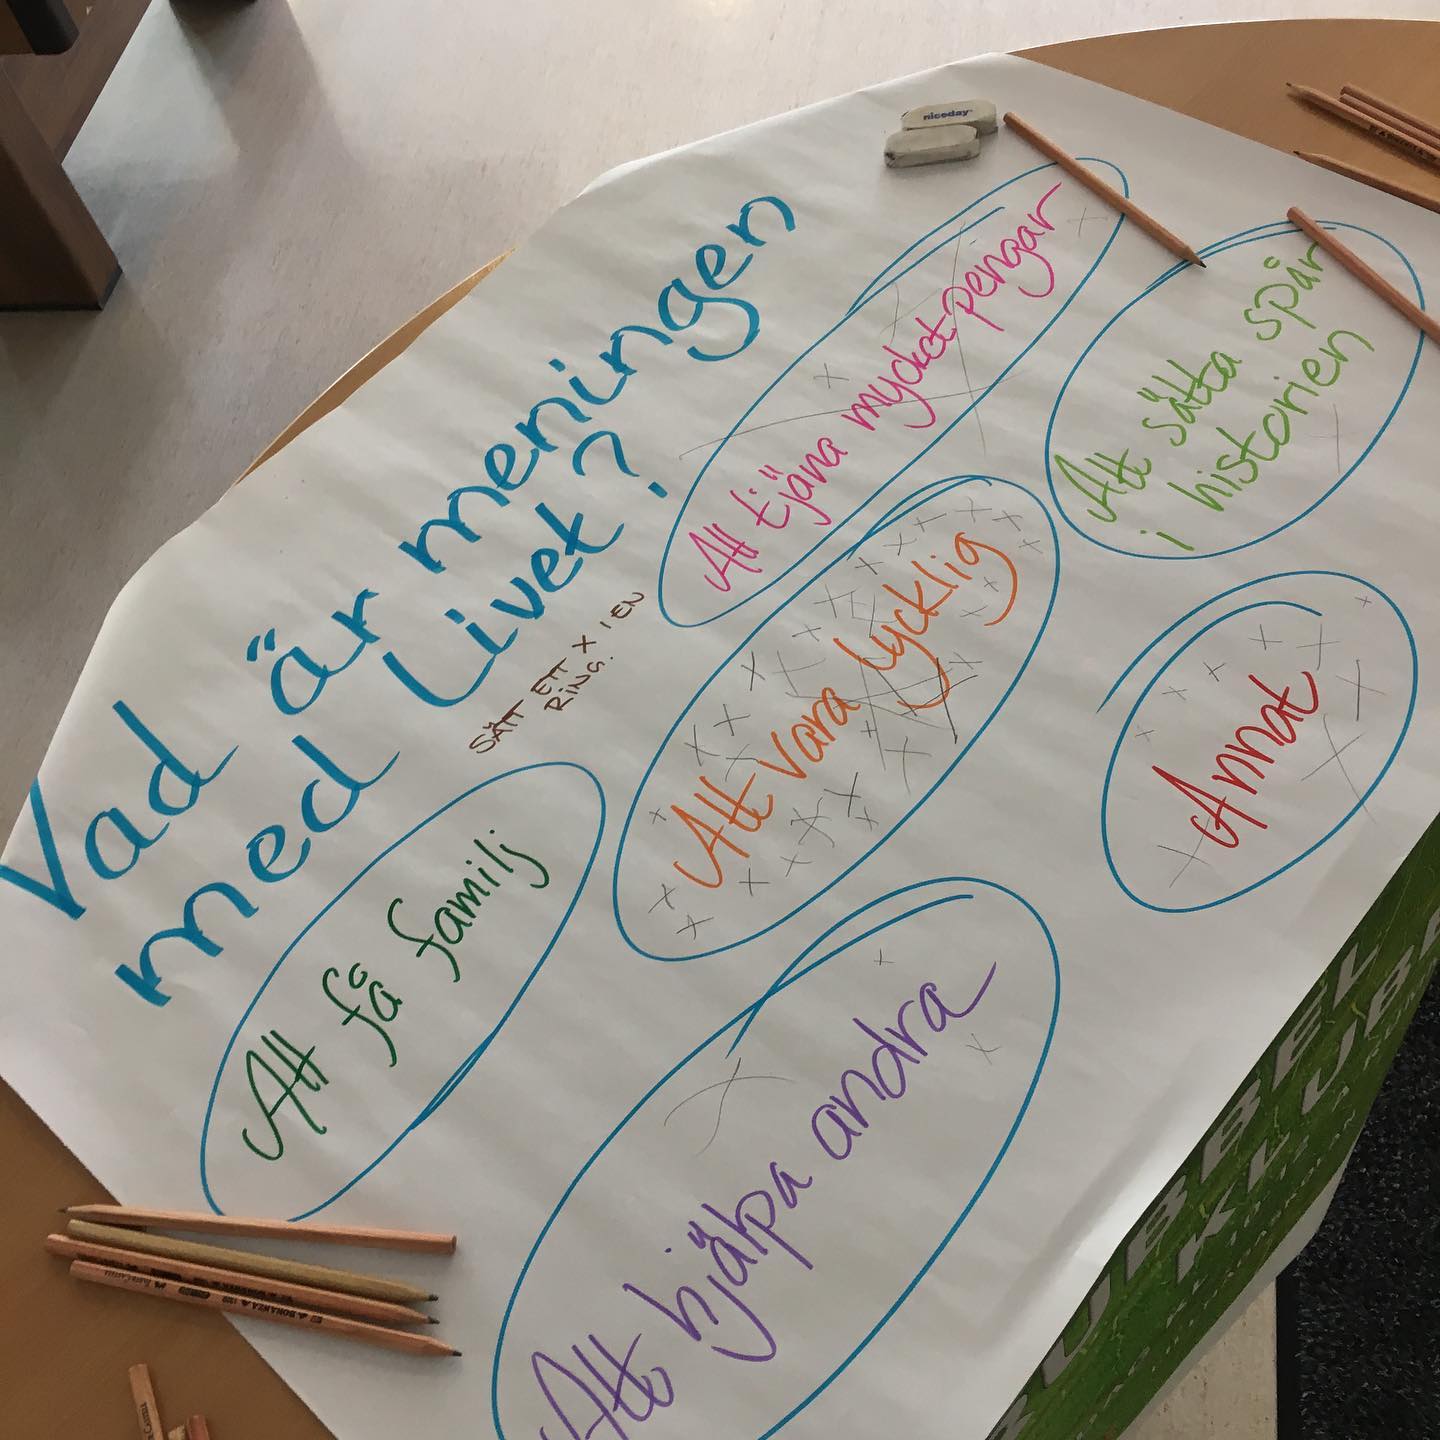 Vad är meningen
med Livet?
SÄTT ETT X I EN
RING.
Att tjäna mycket pengar
Att sätta spår
i historien
Att vara lycklig
Annat
Att få familj
Att hjälpa andra
niceday
BONANZA